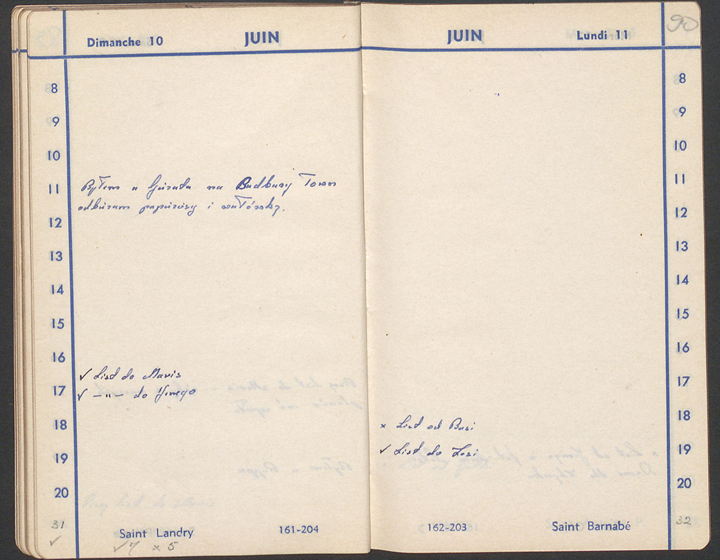 Dimanche 10 JUIN
8
9
10
11
Byłem u na Budbury Town
odbieram papierosy i
12
13
14
15
16
✓ List do Maris
17
✓ —„— do
18
19
20
31
✓
Saint Landry 161-204
✓7 × 5
90
JUIN Lundi 11
8
9
10
11
12
13
14
15
16
17
18
× List od Busi
19
✓ List do Zosi
20
162-203 Saint Barnabé
32